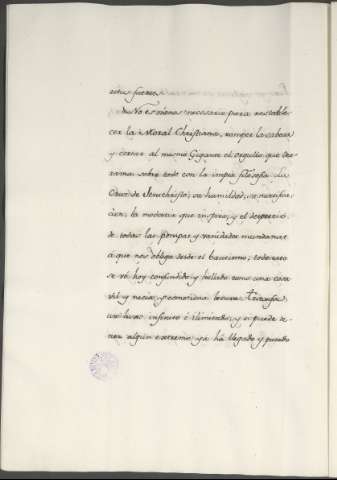 estas fuerzas.
No es menos necesaria para restable-
cer la Moral Christiana, romper la cabeza
y cerrar al mismo Gigante el orgullo que der-
rama sobre todo con la impia filosofia. La
de Jesuchristo, su humildad, su mortifica-
cion, la modestia que inspira, y el desprecio
de todas las pompas y vanidades mundanas
a que nos obliga desde el bautismo; todo esto
se vé hoy confundido y hollado como una cosa
vil y necia,
un luxo infinito é ilimitado, y si puede te-
ner algun extremo ya há llegado y puesto